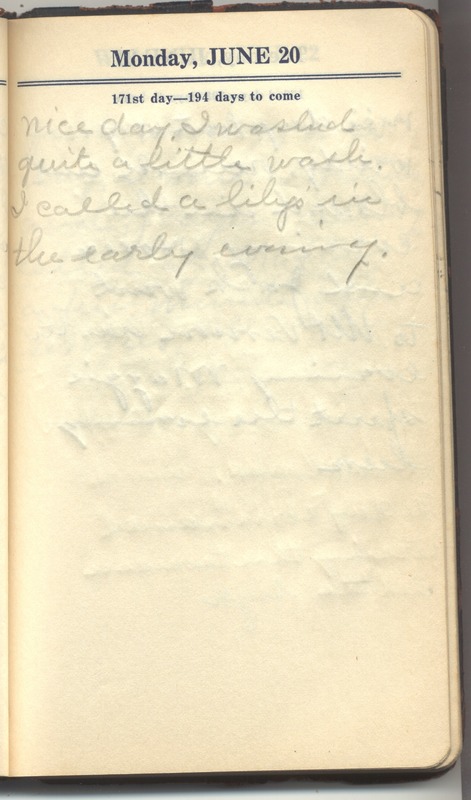 Monday, JUNE 20
171st day—194 days to come
Nice day, I washed
quite a little wash.
I called a lily's in
the early evening.